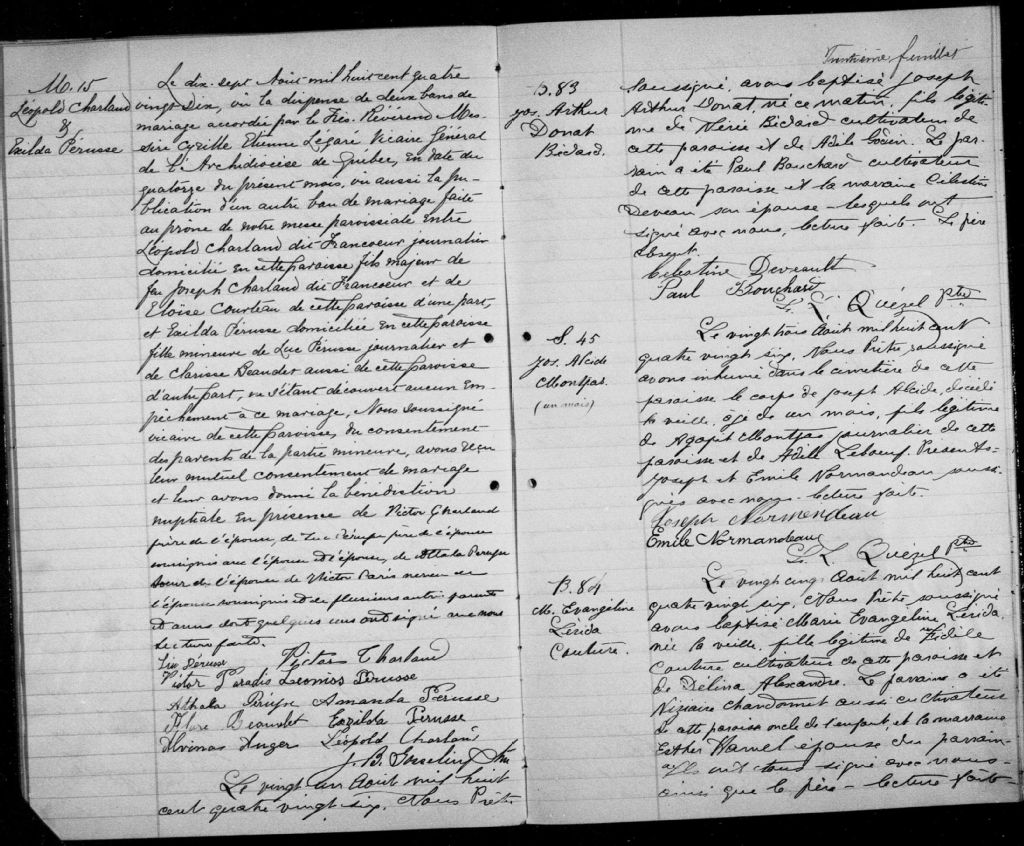 M. 15
Léopold Charland
&
Exilda Pérusse
Le dix-sept Août mil huit cent quatre
vingt Dix, vu la dispense de deux bans de
mariage accordée par le Rés. Révérend Mes
sire Cyrille Etienne Légaré Vicaire Général
de l'Archidiocèse de Québec, en date du
quatorze du présent mois, vu aussi la pu-
blication d'un autre ban de mariage faite
au prone de notre messe paroissiale entre
Léopold Charland dit Francoeur journalier
domicilié en cette paroisse fils majeur de
feu Joseph Charland dit Francoeur et de
Eloïse Courteau de cette paroisse d'une part,
et Exilda Pérusse domiciliée en cette paroisse
fille mineure de Luc Pérusse journalier et
de Clarisse Beaudet aussi de cette paroisse
d'autre part, ne s'étant découvert aucun em
pêchement à ce mariage, Nous soussigné
vicaire de cette paroisse, du consentement
des parents de la partie mineure, avons reçu
leur mutuel consentement de mariage
et leur avons donné la bénédiction
nuptiale en présence de Victor Charland
frère de l'époux, de Luc Pérusse père de l'épouse
soussignés avec l'époux et l'épouse, de Athala Perusse
soeur de l'épouse de Victor Paris neveu de
l'époux soussignés et de plusieurs autres parents
et amis dont quelques uns ont signé avec nous
Lecture faite.
Luc Pérusse Victor Charland
Victor Paradis Leonios Perusse
Athala Péruse Amanda Perusse
Flore Beaudet Exzilda Perusse
Alvinas Auger Léopold Charland
J. B. Gosselin Ptre
Le vingt un Août mil huit
cent quatre vingt six, Nous Prêtre
Trentième feuillet
B. 83
Jos. Arthur
Donat
Bédard.
soussigné, avons baptisé Joseph
Arthur Donat, né ce matin, fils légiti-
me de Nérée Bédard cultivateur de
cette paroisse et de Adèle Godin. Le par-
rain a été Paul Bouchard cultivateur
de cette paroisse et la marraine Célestine
Deveau son épouse lesquels ont
signé avec nous, lecture faite. Le père
absent.
Célestine Deveault
Paul Bouchard
L. L. Quézel Ptre
S. 45
Jos. Alcide
Montpas.
(un mois)
Le vingt trois Août mil huit cent
quatre vingt six, Nous Prêtre soussigné
avons inhumé dans le cimetière de cette
paroisse le corps de Joseph Alcide, décédé
la veille, âgé de un mois, fils légitime
de Agapit Montpas journalier de cette
paroisse et de Adèle Leboeuf. Présents
Joseph et Emile Normandeau sous-
signés avec nous. lecture faite.
Joseph Normendeau
Emile Normandeau
L. L. Quézel Ptre
B. 84
M. Evangéline
Lérida
Couture.
Le vingt cinq Août mil huit cent
quatre vingt six, Nous Prêtre soussigné
avons baptisé Marie Evangéline Lérida,
née la veille, fille légitime de Fidèle
Couture cultivateur de cette paroisse et
de Délina Alexandre. Le parrain a été
Nizaire Chandonnet aussi cultivateur
de cette paroisse oncle de l'enfant, et la marraine
Esther Hamel épouse du parrain
Ils ont tous signé avec nous
ainsi que le père - lecture faite -